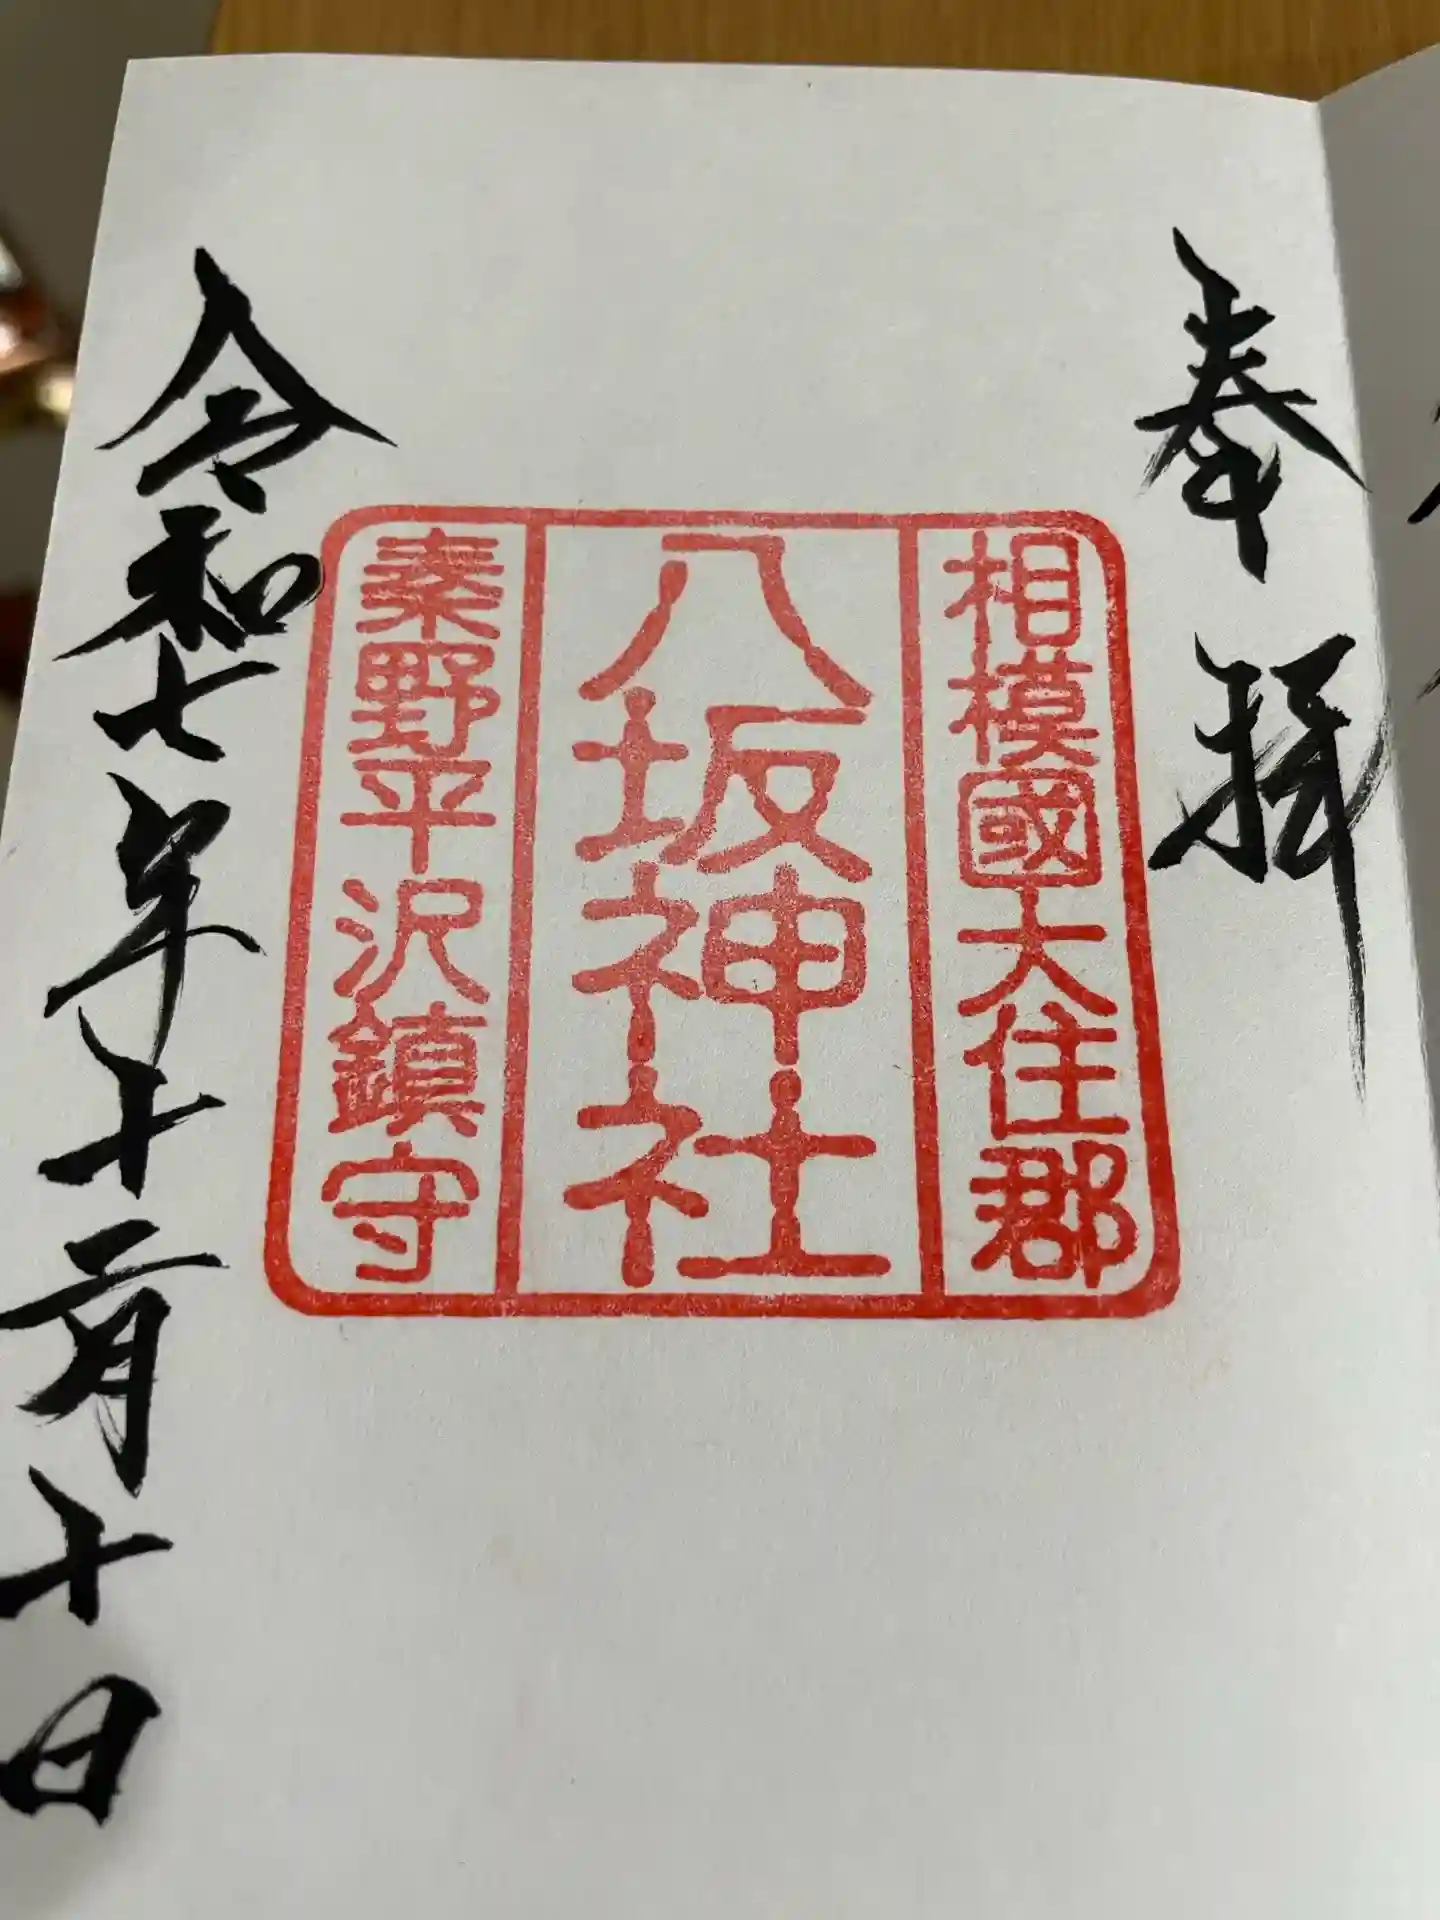 奉拝
相模國大住郡
八坂神社
秦野平沢鎮守
令和七年十二月十日